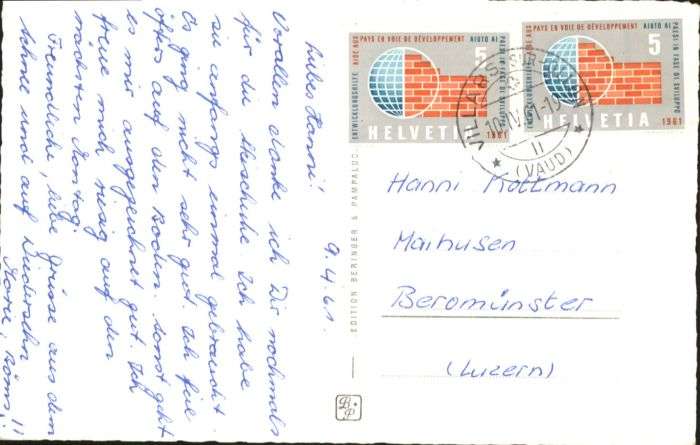 9.4.61.
Liebe Hanni!
Vorallem danke ich Dir nochmals
für die Ich habe
sie anfangs einmal gebraucht.
Es ging nicht sehr gut. Ich fiel
öfters auf den Boden. Sonst geht
es mir ausgezeichnet gut. Ich
freue mich riesig auf den
nächsten Montag
Freundliche, liebe Grüsse aus dem
Schnee und auf Wiedersehn
EDITION BERINGER & PAMPALUCHI
B.P
ENTWICKLUNGSHILFE
AIDE AUX PAYS EN VOIE DE DÉVELOPPEMENT
AIUTO AI PAESI IN FASE DI SVILUPPO
5
HELVETIA 1961
ENTWICKLUNGSHILFE
PAYS EN VOIE DE DÉVELOPPEMENT
AIUTO AI PAESI IN FASE DI SVILUPPO
5
HELVETIA 1961
VILLARS
(VAUD)
Hanni Kottmann
Maihusen
Beromünster
(Luzern)